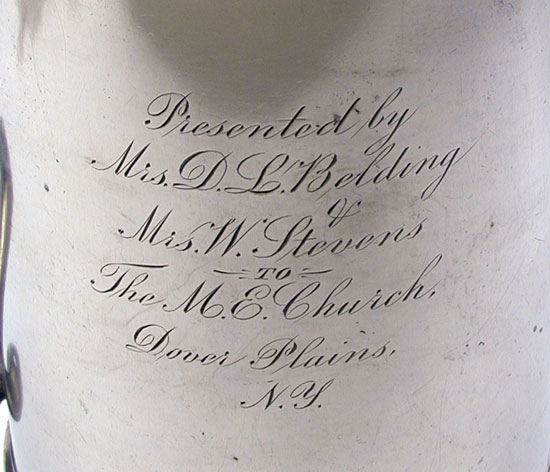 Presented by
Mrs. D. L. Belding
&
Mrs. W. Stevens
TO
The M. E. Church,
Dover Plains,
N.Y.